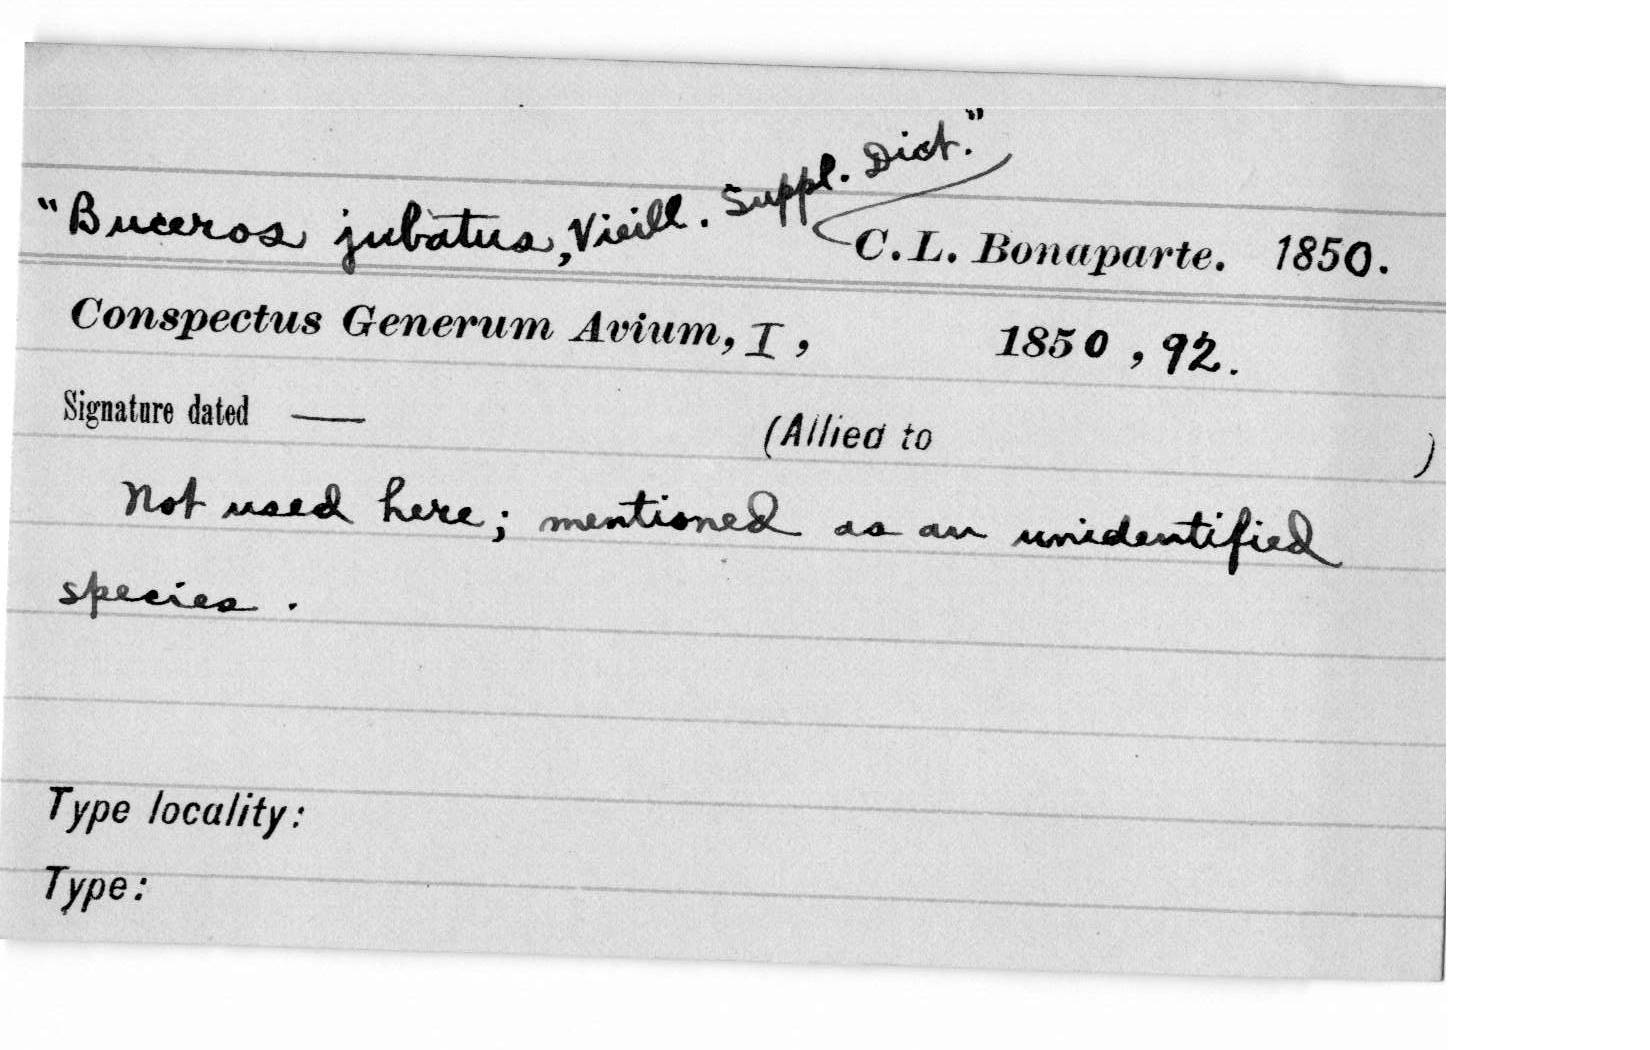 "Buceros jubatus, Vieill. Suppl. Dict."
C. L. Bonaparte. 1850.
Conspectus Generum Avium, I, 1850, 92.
Signature dated —
(Allied to )
Not used here; mentioned as an unidentified
species.
Type locality:
Type: